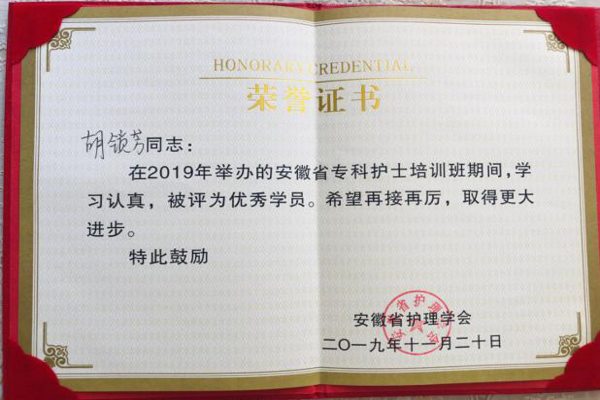 HONORARY CREDENTIAL
荣誉证书
胡锁芳同志：
在2019年举办的安徽省专科护士培训班期间，学
习认真，被评为优秀学员。希望再接再厉，取得更大
进步。
特此鼓励
安徽省护理学会
二〇一九年十一月二十日
安徽省护理学会